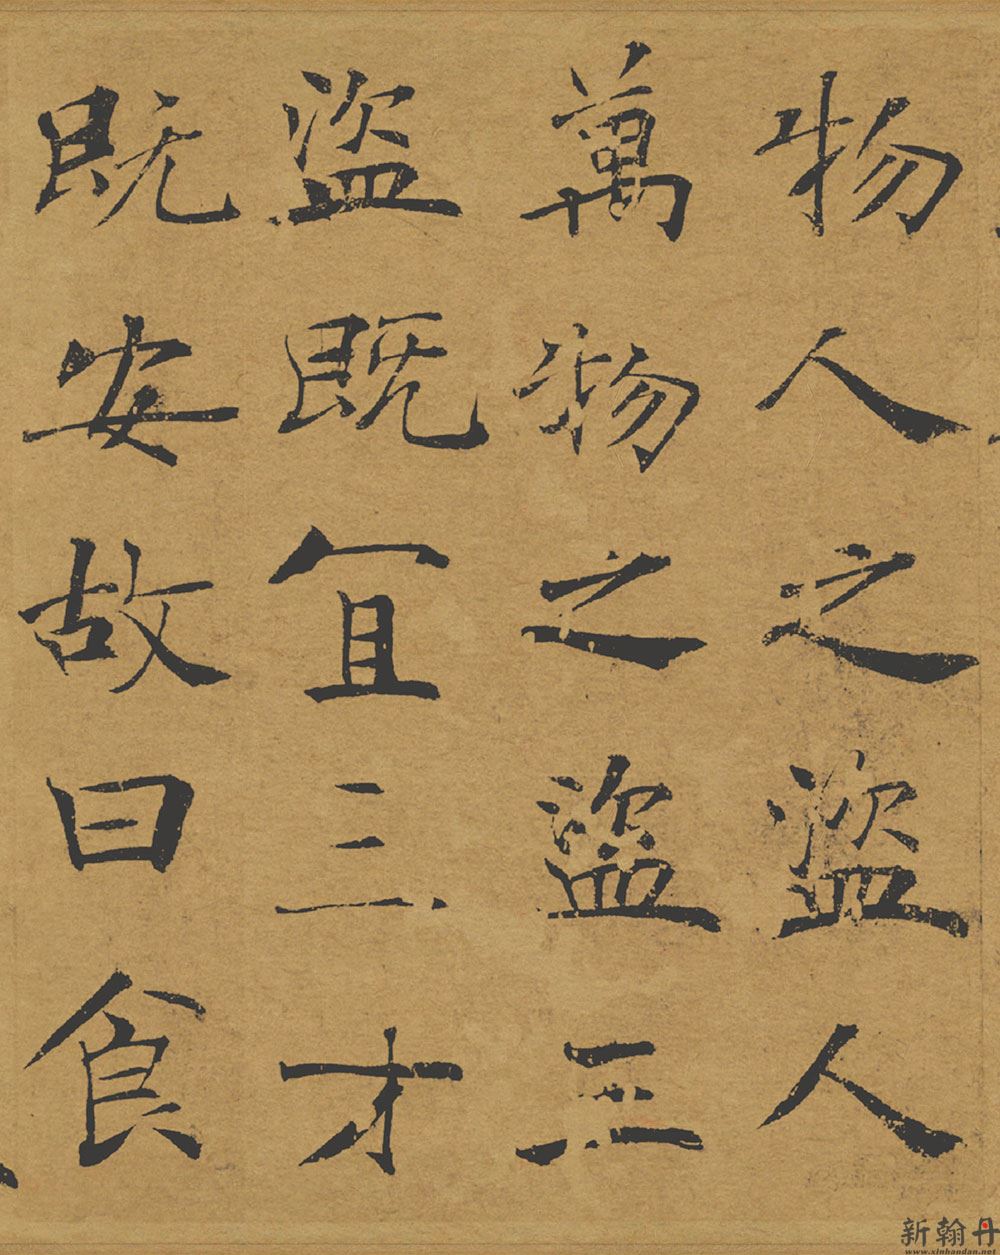 物人之盜人
萬物之盜三
盜既宜三才
既安故曰食
新翰丹
www.xinhandan.net